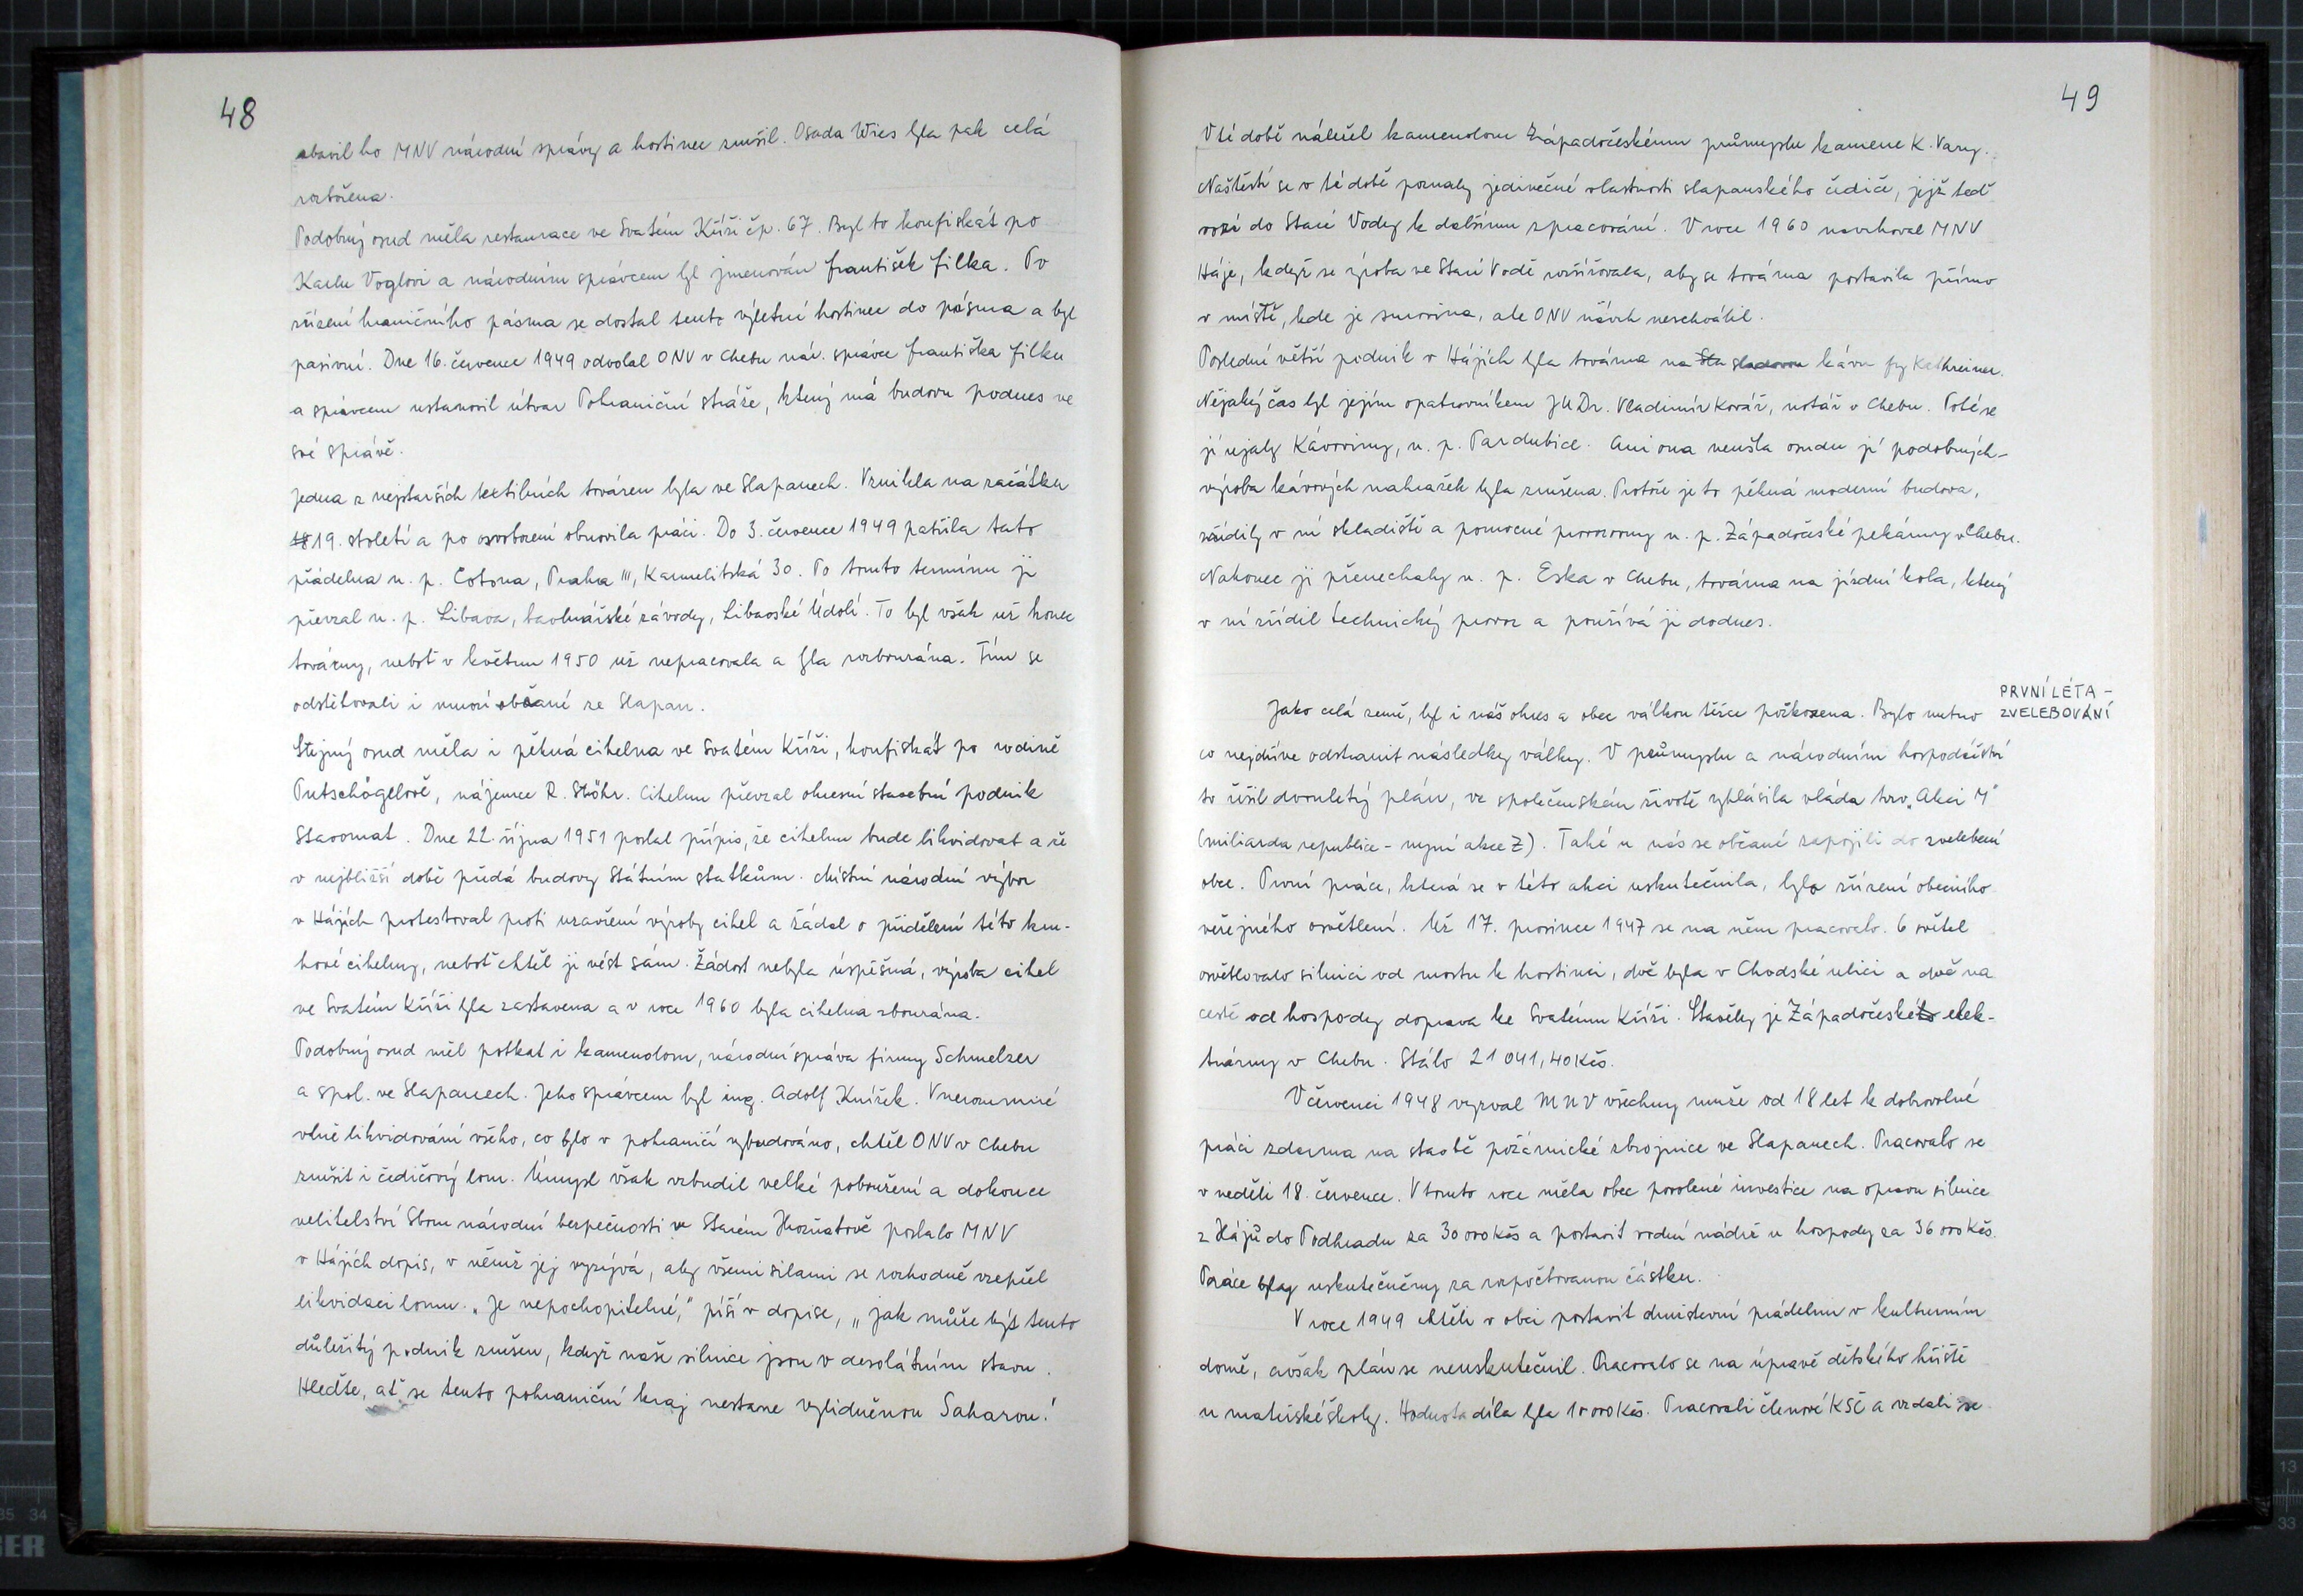 48
zbavil ho MNV národní správy a hostinec zrušil. Osada Wies byla pak celá
rozbořena.
Podobný osud měla restaurace ve Svatém Kříži čp. 67. Byl to konfiskát po
Karlu Voglovi a národním správcem byl jmenován František Filka. Po
zřízení hraničního pásma se dostal tento výletní hostinec do pásma a byl
pasivní. Dne 16. července 1949 odvolal ONV v Chebu nár. správce Františka Filku
a správcem ustanovil útvar Pohraniční stráže, který má budovu podnes ve
své správě.
Jedna z nejstarších textilních továren byla ve Slapanech. Vznikla na začátku
18 19. století a po osvobození obnovila práci. Do 3. července 1949 patřila tato
přádelna n. p. Cotona, Praha III, Karmelitská 30. Po tomto termínu ji
převzal n. p. Libava, bavlnářské závody, Libavské Údolí. To byl však už konec
továrny, neboť v květnu 1950 už nepracovala a byla rozbourána. Tím se
odstěhovali i mnozí občané ze Slapan.
Stejný osud měla i pěkná cihelna ve Svatém Kříži, konfiskát po rodině
Putschögelově, nájemce R. Stöhr. Cihelnu převzal okresní stavební podnik
Stavomat. Dne 22. října 1951 poslal přípis, že cihelnu bude likvidovat a že
v nejbližší době předá budovy Státním statkům. Místní národní výbor
v Hájích protestoval proti uzavření výroby cihel a žádal o přidělení této kru-
hové cihelny, neboť chtěl ji vést sám. Žádost nebyla úspěšná, výroba cihel
ve Svatém Kříži byla zastavena a v roce 1960 byla cihelna zbourána.
Podobný osud měl potkat i kamenolom, národní správa firmy Schmelzer
a spol. ve Slapanech. Jeho správcem byl ing. Adolf Knížek. V nerozumné
vlně likvidování všeho, co bylo v pohraničí vybudováno, chtěl ONV v Chebu
zrušit i čedičový lom. Úmysl však vzbudil velké pobouření a dokonce
velitelství Sboru národní bezpečnosti ve Starém Hrozňatově poslalo MNV
v Hájích dopis, v němž jej vyzývá, aby všemi silami se rozhodně vzepřel
likvidaci lomu. „Je nepochopitelné,“ píší v dopise, „jak může být tento
důležitý podnik zrušen, když naše silnice jsou v desolátním stavu.
Hleďte, ať se tento pohraniční kraj nestane vylidněnou Saharou!
49
V té době náležel kamenolom Západočeskému průmyslu kamene K. Vary.
Naštěstí se v té době poznaly jedinečné vlastnosti slapanského čediče, jejž teď
vozí do Staré Vody k dalšímu zpracování. V roce 1960 navrhoval MNV
Háje, když se výroba ve Staré Vodě rozšiřovala, aby se továrna postavila přímo
v místě, kde je surovina, ale ONV návrh neschválil.
Poslední větší podnik v Hájích byla továrna na Sla sladovou kávu fy Kathreiner.
Nějaký čas byl jejím opatrovníkem JUDr. Vladimír Kovář, notář v Chebu. Poté se
jí ujaly Kávoviny, n. p. Pardubice. Ani ona neušla osudu jí podobných –
výroba kávových náhražek byla zrušena. Protože je to pěkná moderní budova,
zřídily v ní skladiště a pomocné provozovny n. p. Západočeské pekárny v Chebu.
Nakonec ji přenechaly n. p. Eska v Chebu, továrna na jízdní kola, který
v ní zřídil technický provoz a používá ji dodnes.
PRVNÍ LÉTA –
ZVELEBOVÁNÍ
Jako celá země, byl i náš okres a obec válkou těžce poškozena. Bylo nutno
co nejdříve odstranit následky války. V průmyslu a národním hospodářství
to řešil dvouletý plán, ve společenském životě vyhlásila vláda tzv. „Akci M“
(miliarda republice – nyní akce Z). Také u nás se občané zapojili do zvelebení
obce. První práce, která se v této akci uskutečnila, bylo zřízení obecního
veřejného osvětlení. Už 17. prosince 1947 se na něm pracovalo. 6 světel
osvětlovalo silnici od mostu k hostinci, dvě byla v Chodské ulici a dvě na
cestě od hospody doprava ke Svatému Kříži. Stavěly je Západočeské elek-
trárny v Chebu. Stálo 21 041,40 Kčs.
V červenci 1948 vyzval MNV všechny muže od 18 let k dobrovolné
práci zdarma na stavbě požárnické zbrojnice ve Slapanech. Pracovalo se
v neděli 18. července. V tomto roce měla obec povolené investice na opravu silnice
z Hájů do Podhradu za 30 000 Kčs a postavit vodní nádrž u hospody za 36 000 Kčs.
Práce byly uskutečněny za rozpočtovanou částku.
V roce 1949 chtěli v obci postavit družstevní prádelnu v kulturním
domě, avšak plán se neuskutečnil. Pracovalo se na úpravě dětského hřiště
u mateřské školy. Hodnota díla byla 10 000 Kčs. Pracovali členové KSČ a vzdali se